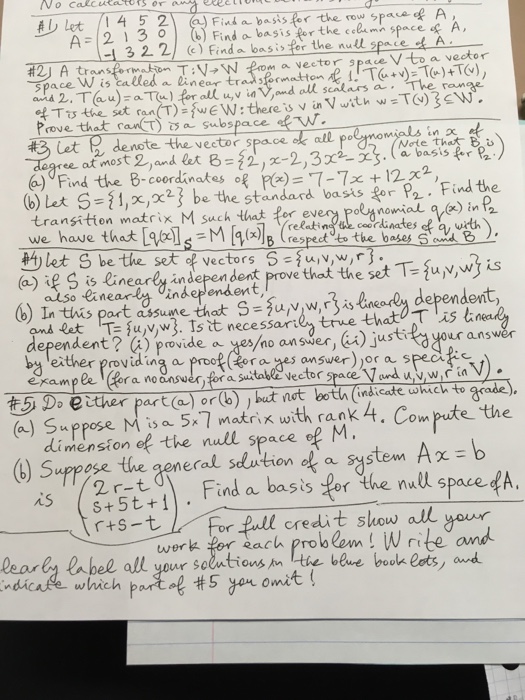 No calculators or any
#1) Let A = (1 4 5 2 (a) Find a basis for the row space of A,
2 1 3 0 (b) Find a basis for the column space of A,
-1 3 2 2) (c) Find a basis for the null space of A.
#2) A transformation T:V→W from a vector space V to a vector
space W is called a linear transformation if 1. T(u+v)=T(u)+T(v),
and 2. T(au)=aT(u) for all u,v in V, and all scalars a. The range
of T is the set ran(T)={w∈W: there is v in V with w=T(v)}⊆W.
Prove that ran(T) is a subspace of W.
#3) Let P₂ denote the vector space of all polynomials in x of
degree at most 2, and let B={2, x-2, 3x²-x}. (Note that B is a basis for P₂.)
(a) Find the B-coordinates of p(x)=7-7x+12x²,
(b) Let S={1,x,x²} be the standard basis for P₂. Find the
transition matrix M such that for every polynomial q(x) in P₂
we have that [q(x)]_S=M[q(x)]_B (relating the coordinates of q, with respect to the bases S and B).
#4) Let S be the set of vectors S={u,v,w,r}.
(a) if S is linearly independent prove that the set T={u,v,w} is
also linearly independent,
(b) In this part assume that S={u,v,w,r} is linearly dependent,
and let T={u,v,w}. Is it necessarily true that T is linearly
dependent? (i) provide a yes/no answer, (ii) justify your answer
by either providing a proof (for a yes answer), or a specific
example (for a no answer, for a suitable vector space V and u,v,w,r in V).
#5) Do either part (a) or (b), but not both (indicate which to grade).
(a) Suppose M is a 5×7 matrix with rank 4. Compute the
dimension of the null space of M.
(b) Suppose the general solution of a system Ax=b
is (2r-t
s+5t+1
r+s-t). Find a basis for the null space of A.
For full credit show all your
work for each problem! Write and
learly label all your solutions in the blue booklets, and
indicate which part of #5 you omit!